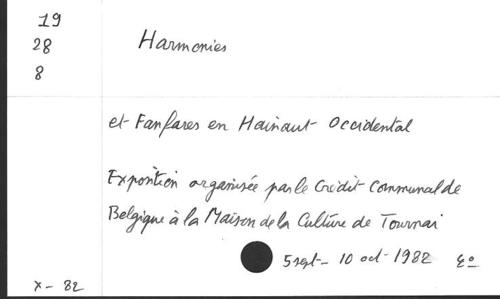 19
28
8
Harmonies
et Fanfares en Hainaut Occidental
Exposition organisée par le Crédit Communal de
Belgique à la Maison de la Culture de Tournai
5 sept - 10 oct - 1982
X - 82